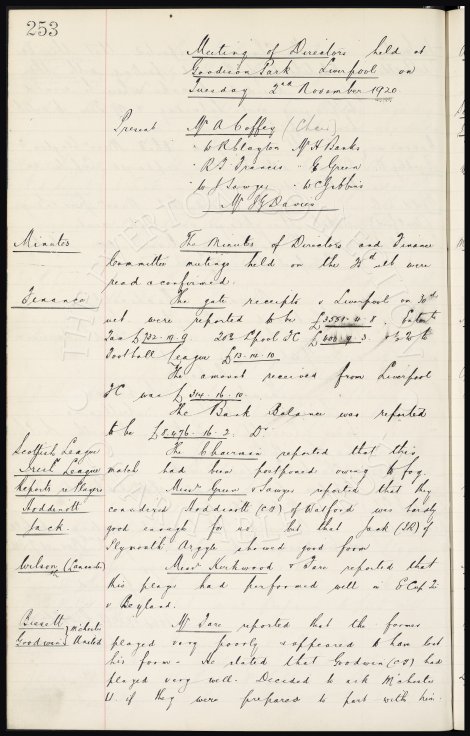 253
Meeting of Directors held at
Goodison Park Liverpool on
Tuesday 2nd November 1920
Present Mr A Coffey (Chair)
" W R Clayton Mr H Banks
" R T Francis " E Green
" W J Sawyer " W C Gibbins
Mr J G Davies
Minutes The Minutes of Directors and Finance
Committee meetings held on the ult were
read & confirmed.
Finance The gate receipts v Liverpool on
ult were reported to be
Tax £732.19.9 20% L'pool FC 3 &
Football League £13.14.10
The amount received from Liverpool
FC was £314.16.10
The Bank Balance was reported
to be £5,476.16.2. Dr
Scottish League The Chairman reported that this
Irish League match had been postponed owing to fog.
Reports re Players Messrs Green & Sawyer reported that they
Hoddinott considered Hoddinott (CF) of Watford was hardly
Jack good enough for us but that Jack (IR) of
Plymouth Argyle showed good form
Wilson (Lancaster) Messrs Kirkwood & Fare reported that
this player had performed well in E Cup Tie
v Leyland.
Bissett } M'chester Mr Fare reported that the former
Goodwin } United played very poorly & appeared to have lost
his form. He stated that Goodwin (CF) had
played very well. Decided to ask M'chester
U. if they were prepared to part with him.